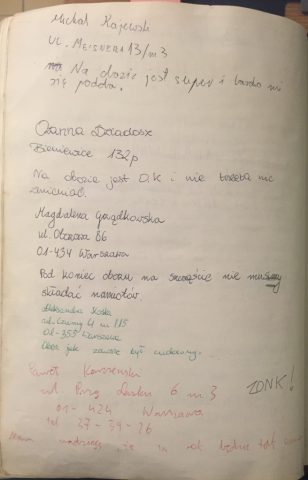 Michał Kajewski
ul. MEISSNERA 13/m3
Na obozie jest super i bardzo mi
się podoba.
Osanna Dziadosz
Bieniewice 132p
Na obozie jest O.K i nie trzeba nic
zmieniać.
Magdalena Gorządkowska
ul. Obozowa 86
01-434 Warszawa
Pod koniec obozu na szczęście nie musimy
składać namiotów.
Aleksandra
m 115
01-355 Warszawa
Obóz jak zawsze był cudowny.
Paweł
ul. Przy Lasku 6 m 3
ZONK!
01-424 Warszawa
tel 37-39-26
mam nadzieję, że za rok będzie też